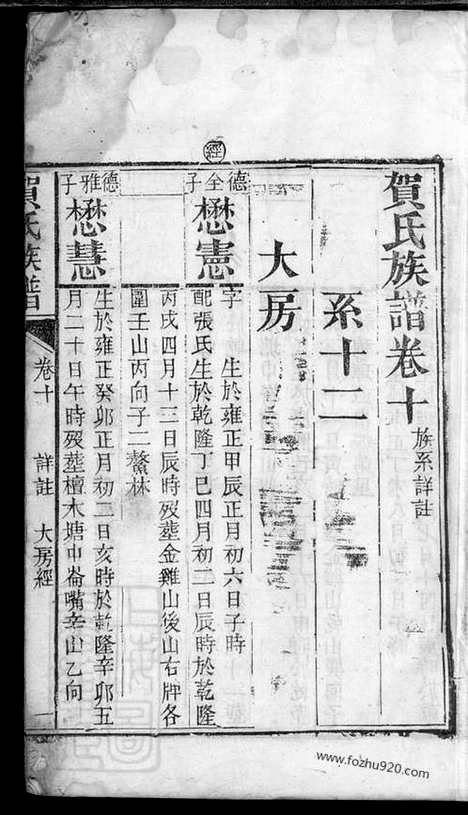 經
賀氏族譜卷十
族系詳註
系十二
大房
德全子
懋憲
字　生於雍正甲辰正月初六日子時
配張氏生於乾隆丁巳四月初二日辰時於乾隆
丙戌四月十三日辰時歿塟金雞山後山右牌各
圍壬山丙向子二鰲林
德雅子
懋慧
生於雍正癸卯正月初二日亥時於乾隆辛卯五
月二十日午時歿塟檀木塘中崙嘴辛山乙向
賀氏族譜
卷十
詳註
大房經
一
www.fozhu920.com